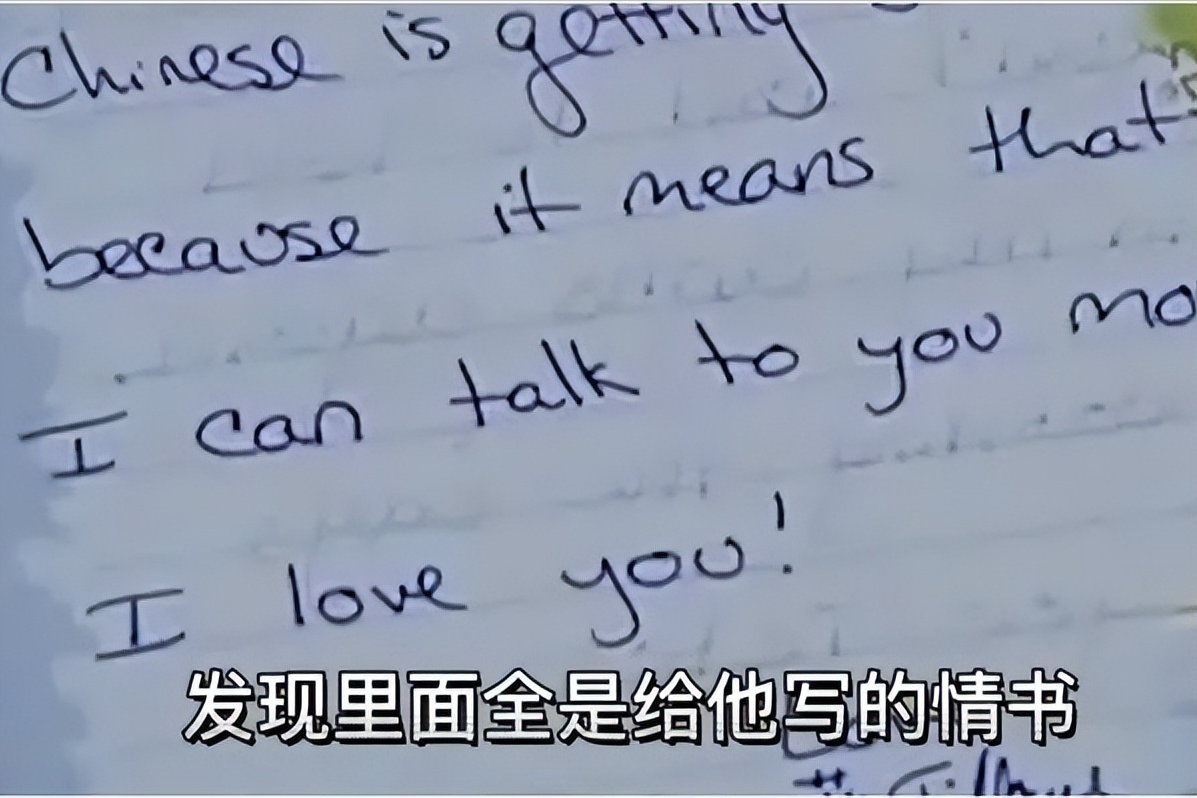 Chinese is getting
because it means that
I can talk to you mo
I love you!
发现里面全是给他写的情书